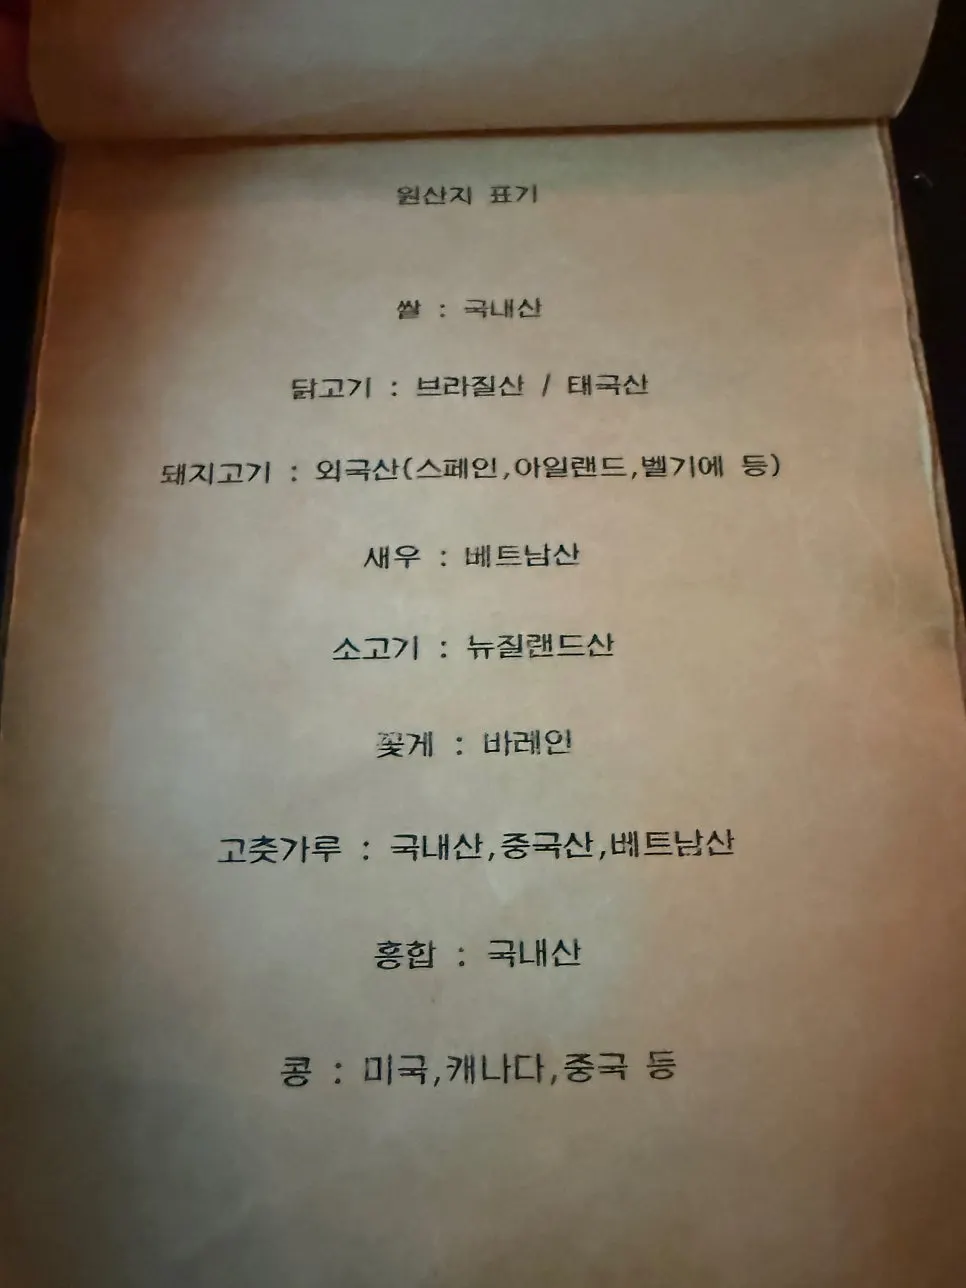 원산지 표기
쌀 : 국내산
닭고기 : 브라질산 / 태국산
돼지고기 : 외국산(스페인,아일랜드,벨기에 등)
새우 : 베트남산
소고기 : 뉴질랜드산
꽃게 : 바레인
고춧가루 : 국내산,중국산,베트남산
홍합 : 국내산
콩 : 미국,캐나다,중국 등